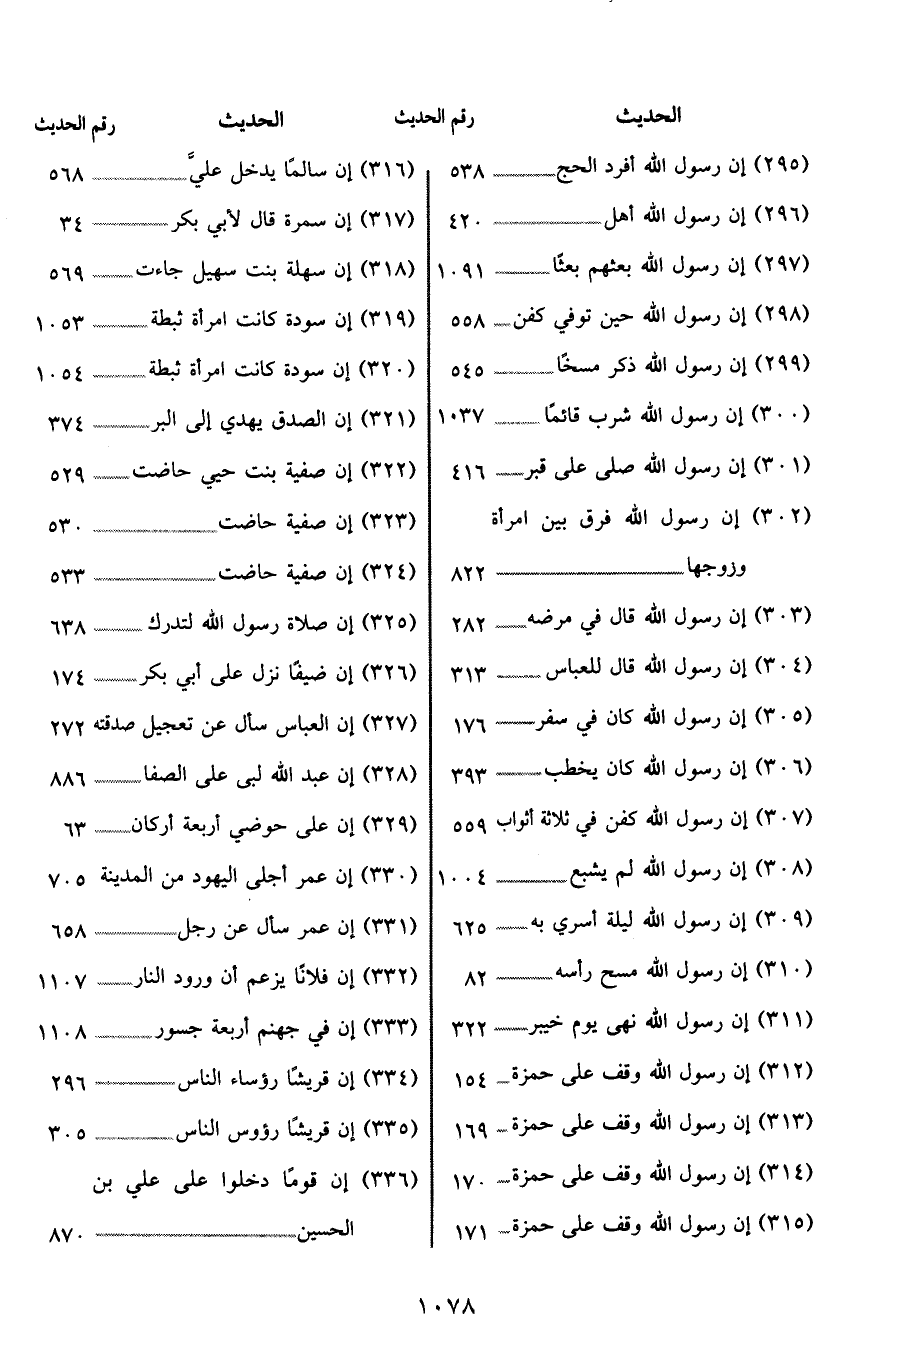 الحديث رقم الحديث
(٢٩٥) إن رسول الله أفرد الحج ٥٣٨
(٢٩٦) إن رسول الله أهل ٤٢٠
(٢٩٧) إن رسول الله بعثهم بعثًا ١٠٩١
(٢٩٨) إن رسول الله حين توفي كفن ٥٥٨
(٢٩٩) إن رسول الله ذكر مسخًا ٥٤٥
(٣٠٠) إن رسول الله شرب قائمًا ١٠٣٧
(٣٠١) إن رسول الله صلى على قبر ٤١٦
(٣٠٢) إن رسول الله فرق بين امرأة
وزوجها ٨٢٢
(٣٠٣) إن رسول الله قال في مرضه ٢٨٢
(٣٠٤) إن رسول الله قال للعباس ٣١٣
(٣٠٥) إن رسول الله كان في سفر ١٧٦
(٣٠٦) إن رسول الله كان يخطب ٣٩٣
(٣٠٧) إن رسول الله كفن في ثلاثة أثواب ٥٥٩
(٣٠٨) إن رسول الله لم يشبع ١٠٠٤
(٣٠٩) إن رسول الله ليلة أسري به ٦٢٥
(٣١٠) إن رسول الله مسح رأسه ٨٢
(٣١١) إن رسول الله نهى يوم خيبر ٣٢٢
(٣١٢) إن رسول الله وقف على حمزة ١٥٤
(٣١٣) إن رسول الله وقف على حمزة ١٦٩
(٣١٤) إن رسول الله وقف على حمزة ١٧٠
(٣١٥) إن رسول الله وقف على حمزة ١٧١
الحديث رقم الحديث
(٣١٦) إن سالمًا يدخل عليَّ ٥٦٨
(٣١٧) إن سمرة قال لأبي بكر ٣٤
(٣١٨) إن سهلة بنت سهيل جاءت ٥٦٩
(٣١٩) إن سودة كانت امرأة ثبطة ١٠٥٣
(٣٢٠) إن سودة كانت امرأة ثبطة ١٠٥٤
(٣٢١) إن الصدق يهدي إلى البر ٣٧٤
(٣٢٢) إن صفية بنت حيي حاضت ٥٢٩
(٣٢٣) إن صفية حاضت ٥٣٠
(٣٢٤) إن صفية حاضت ٥٣٣
(٣٢٥) إن صلاة رسول الله لتدرك ٦٣٨
(٣٢٦) إن ضيفًا نزل على أبي بكر ١٧٤
(٣٢٧) إن العباس سأل عن تعجيل صدقته ٢٧٢
(٣٢٨) إن عبد الله لبى على الصفا ٨٨٦
(٣٢٩) إن على حوضي أربعة أركان ٦٣
(٣٣٠) إن عمر أجلى اليهود من المدينة ٧٠٥
(٣٣١) إن عمر سأل عن رجل ٦٥٨
(٣٣٢) إن فلانًا يزعم أن ورود النار ١١٠٧
(٣٣٣) إن في جهنم أربعة جسور ١١٠٨
(٣٣٤) إن قريشًا رؤساء الناس ٢٩٦
(٣٣٥) إن قريشًا رؤوس الناس ٣٠٥
(٣٣٦) إن قومًا دخلوا على علي بن
الحسين ٨٧٠
١٠٧٨